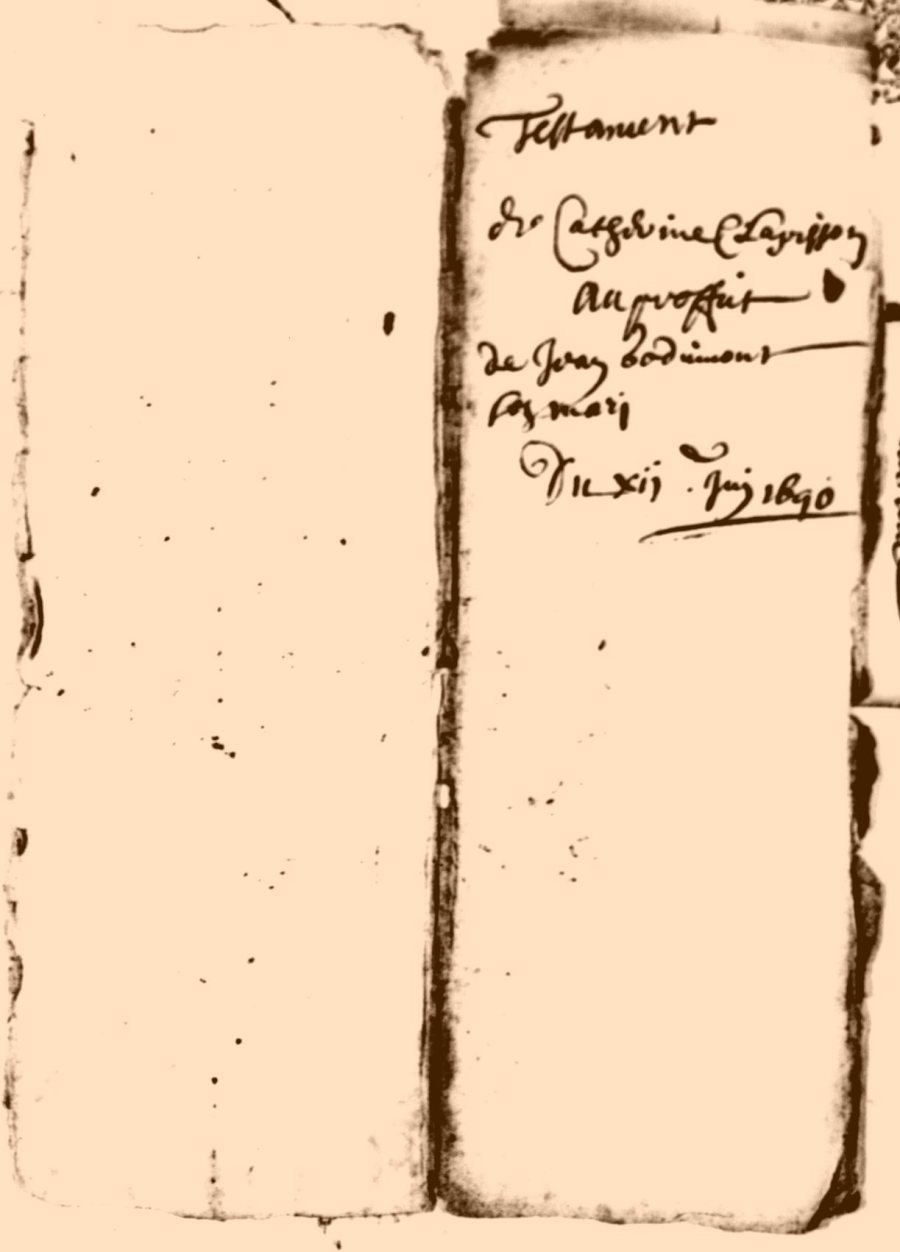 Testament
de Catherine Clarisson
Au proffict
de Jean bodimont
son mari
Du xij Juin 1690